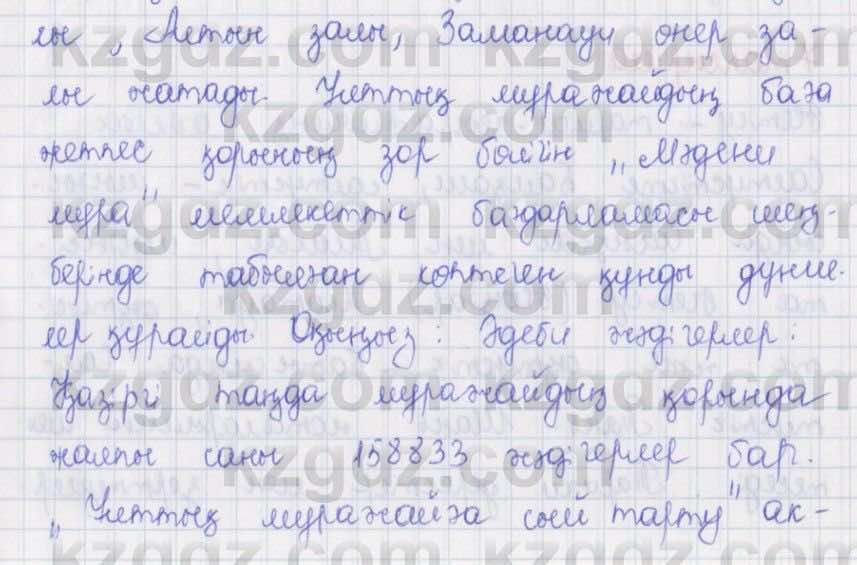 лы, „Алтын залы, Заманауи өнер за-
лы жатады. Ұлттық мұражайдың баға
жетпес қорының зор бөлігін „Мәдени
мұра" мемлекеттік бағдарламасы шең-
берінде табылған көптеген құнды дүние-
лер құрайды. Оқыңыз: Әдеби жәдігерлер:
Қазіргі таңда мұражайдың қорында
жалпы саны 158833 жәдігерлер бар.
„Ұлттық мұражайға сый тарту" ак-
kzgdz.com